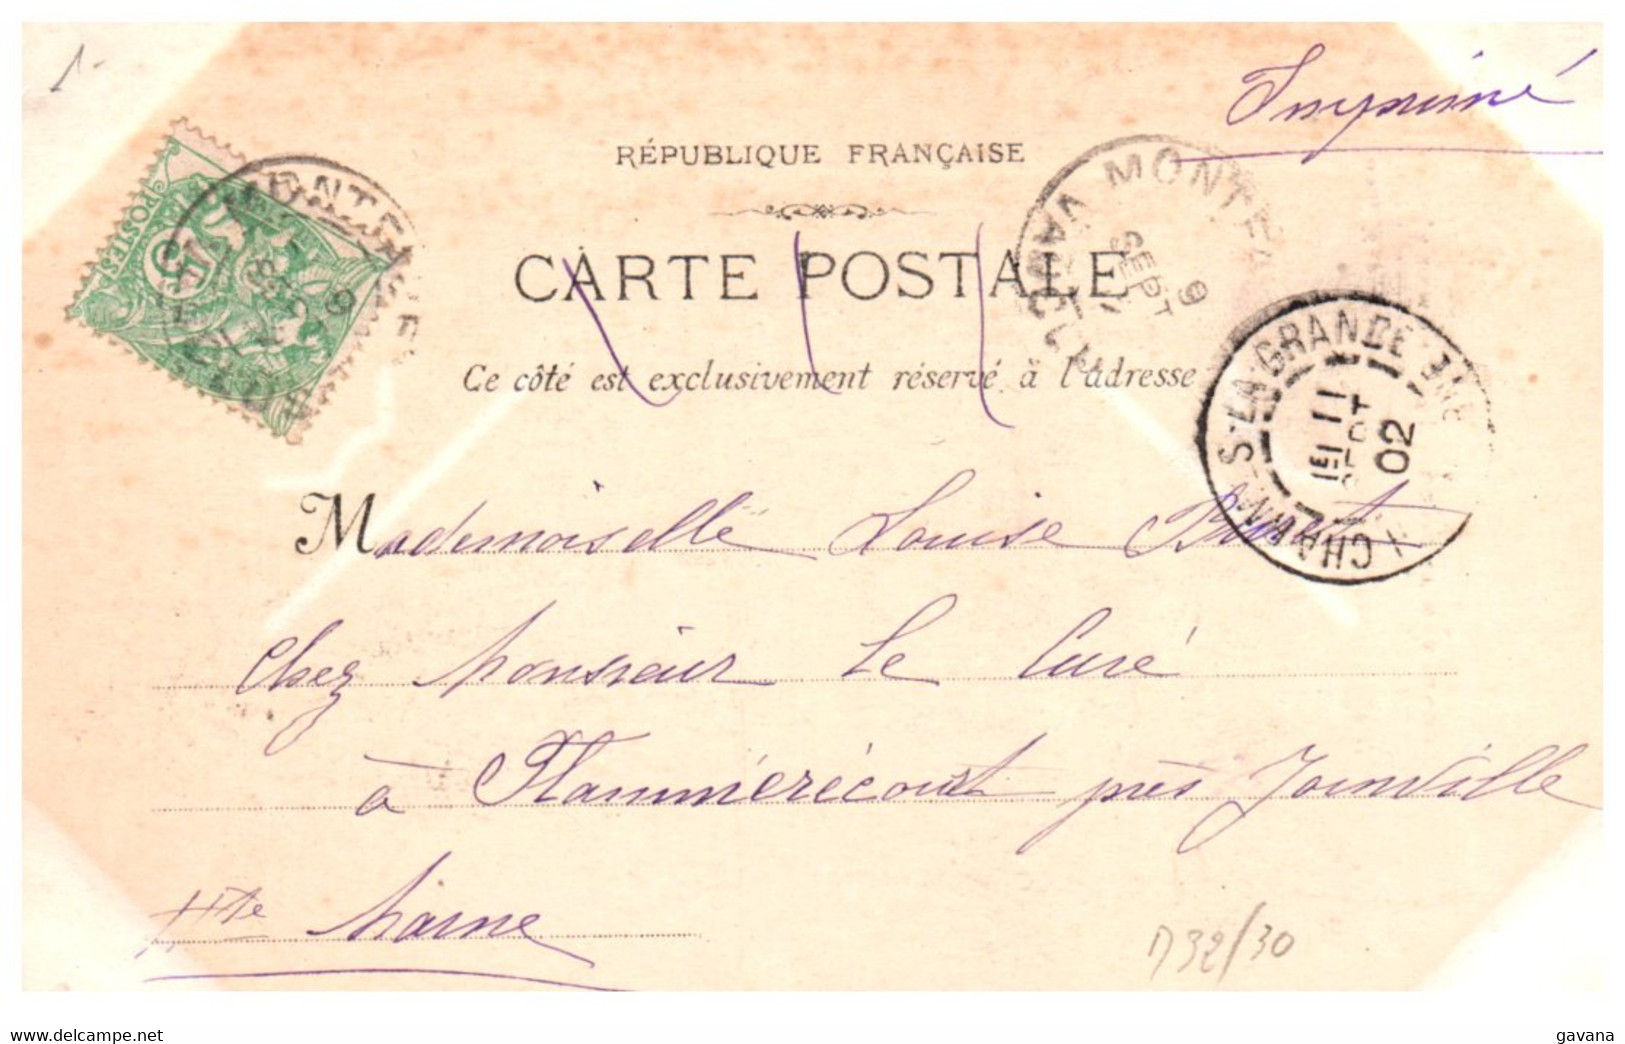 1-
Imprimé
RÉPUBLIQUE FRANÇAISE
CARTE POSTALE
Ce côté est exclusivement réservé à l'adresse
POSTES
5
MONTFA
VAUCLU
9
SEPT
LA GRANDE
11
02
Mademoiselle Louise
Chez Monsieur Le Curé
à Flammérécourt près Joinville
Hte Marne
D32/30
delcampe.net
gavana